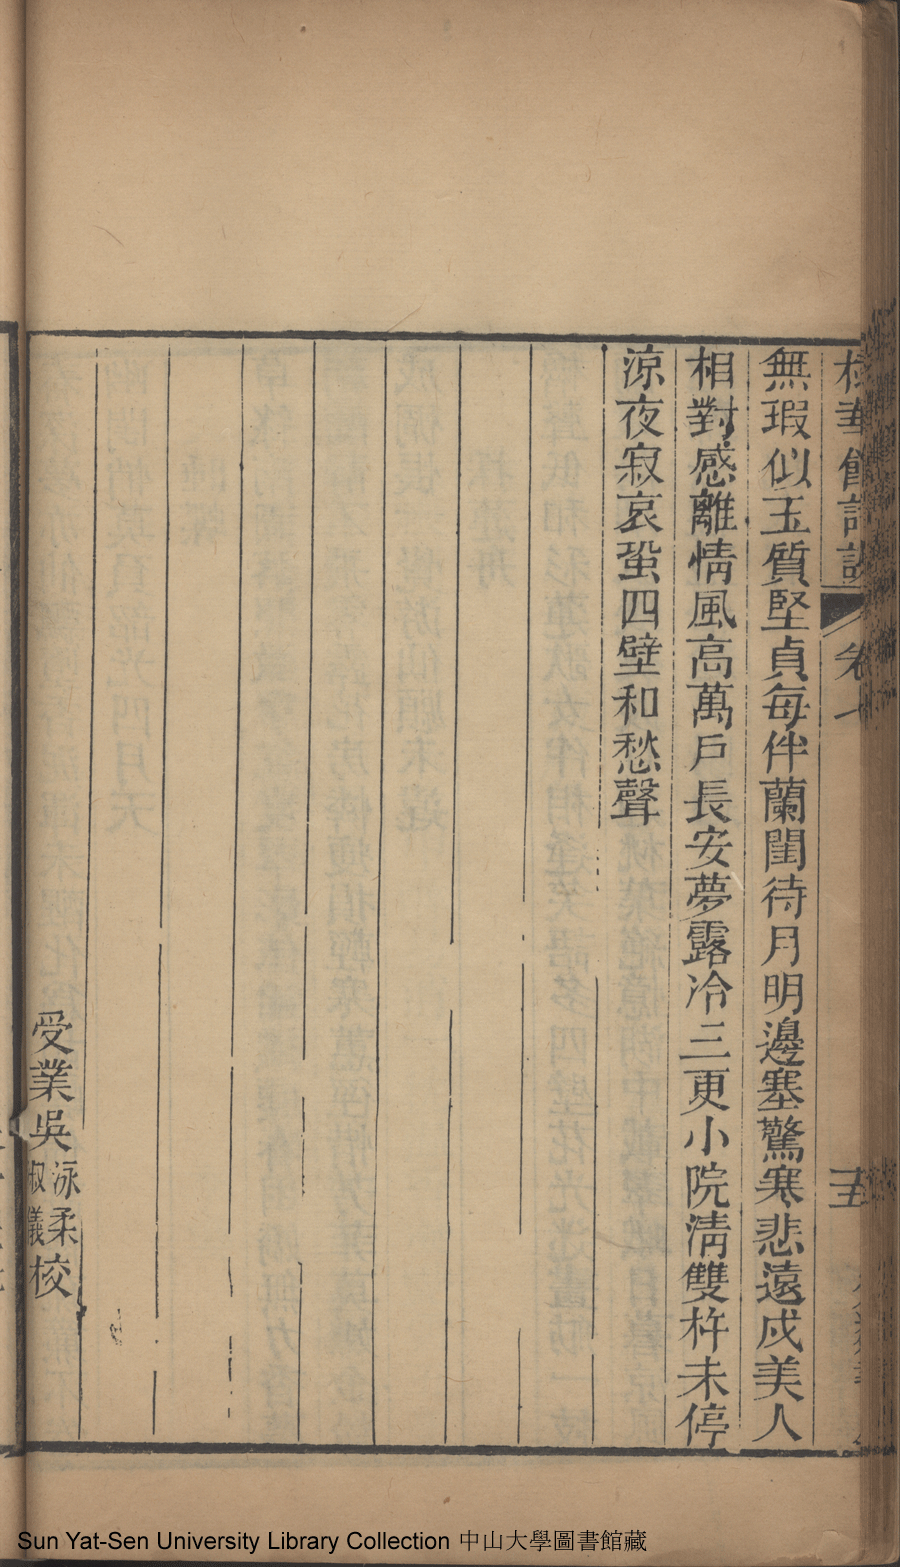 無瑕似玉質堅貞每伴蘭閨待月明邊塞驚寒悲遠戍美人
相對感離情風高萬戶長安夢露冷三更小院淸雙杵未停
涼夜寂哀蛩四壁和愁聲
受業吳
泳柔
淑儀
校
Sun Yat-Sen University Library Collection 中山大學圖書館藏